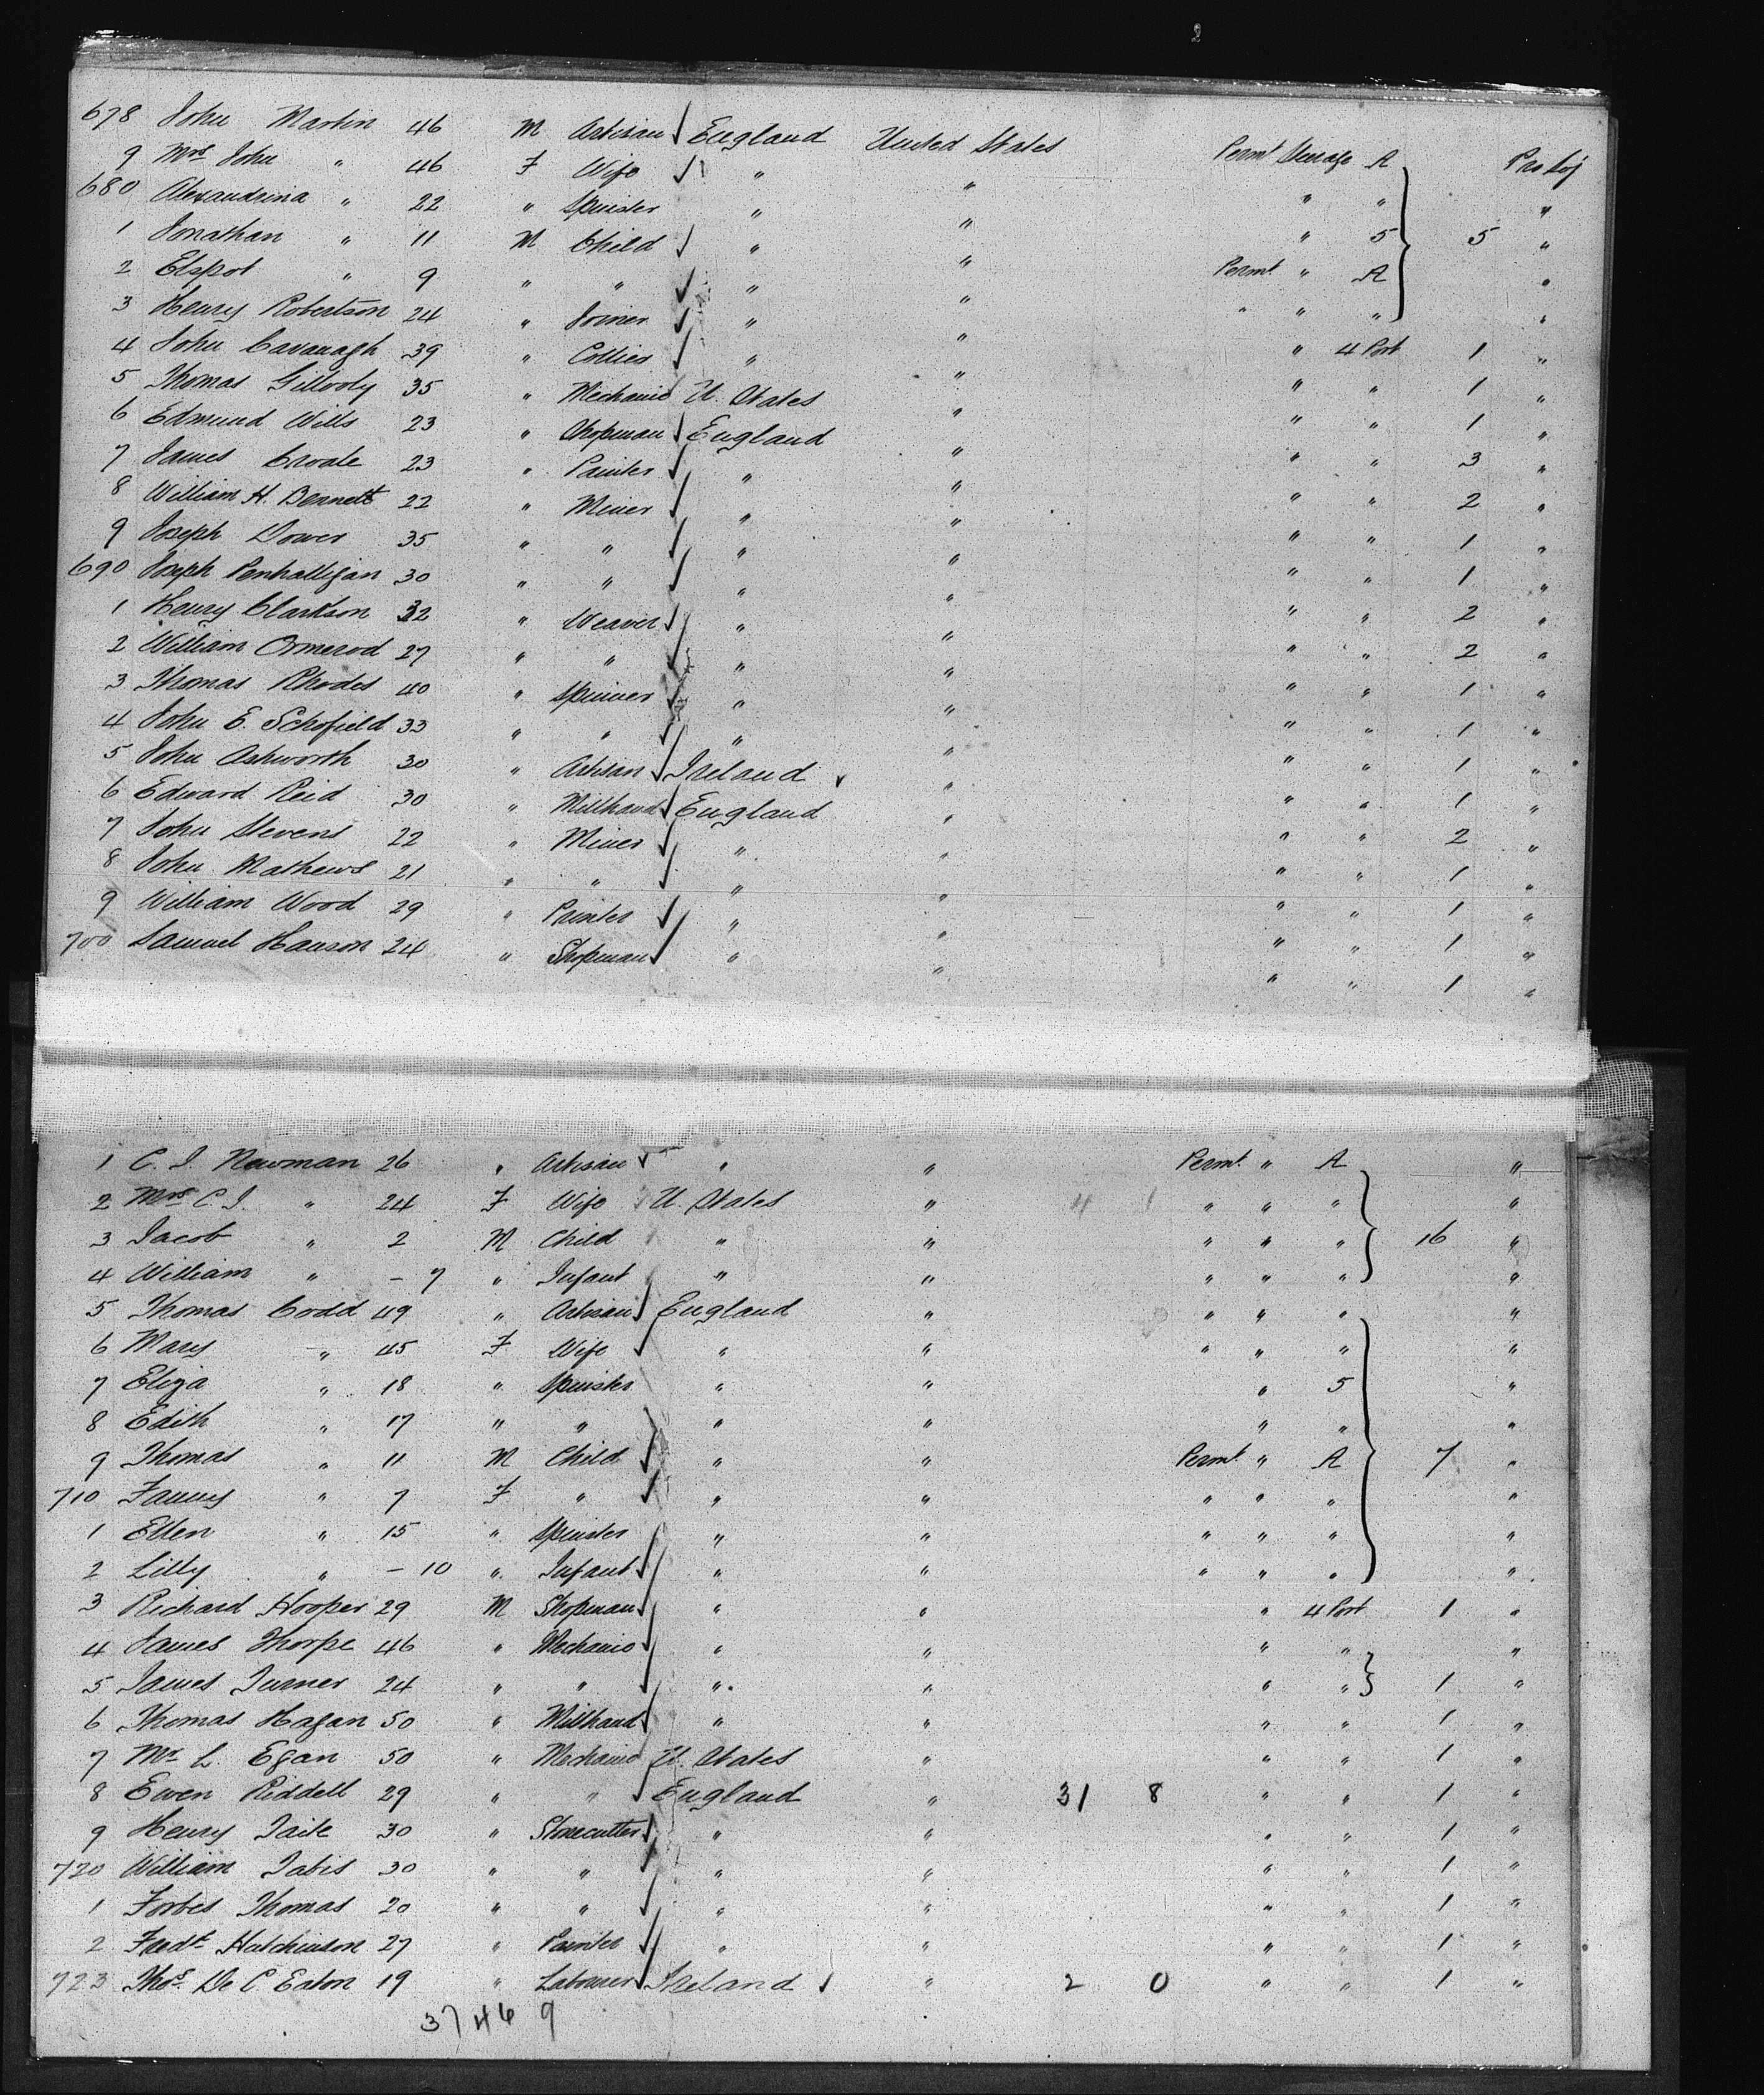 2
678 John Martin 46 M Artisan England United States Permt Steerage A Pro Loj
9 Mrs John " 46 F Wife " " " " "
680 Alexandrina " 22 " Spinster " " " 5 5 "
1 Jonathan " 11 M Child " " Permt " A "
2 Elspot " 9 " " " " " " " "
3 Henry Robertson 24 " Joiner " " " 4 Port 1 "
4 John Cavanagh 39 " Collier " " " " 1 "
5 Thomas Gillooly 35 " Mechanic U. States " " " 1 "
6 Edmund Wills 23 " Shopman England " " " 3 "
7 James Croate 23 " Painter " " " " 2 "
8 William H. Bennett 22 " Miner " " " " 1 "
9 Joseph Dower 35 " " " " " " 1 "
690 Joseph Penhalligan 30 " " " " " " 2 "
1 Henry Clarkson 32 " Weaver " " " " 2 "
2 William Ormerod 27 " " " " " " 1 "
3 Thomas Rhodes 40 " Spinner " " " " 1 "
4 John E. Schofield 33 " " " " " " 1 "
5 John Ashworth 30 " Artisan Ireland " " " 1 "
6 Edward Reid 30 " Millhand England " " " 2 "
7 John Stevens 22 " Miner " " " " 1 "
8 John Mathews 21 " " " " " " 1 "
9 William Wood 29 " Printer " " " " 1 "
700 Samuel Hanson 24 " Shopman " " " " 1 "
1 C. J. Newman 26 " Artisan " " Permt. " A "
2 Mrs C. J. " 24 F Wife U. States " 4 1 " " " "
3 Jacob " 2 M Child " " " " " 16 "
4 William " – 7 " Infant " " " " " "
5 Thomas Codd 49 " Artisan England " " " " "
6 Mary " 45 F Wife " " " " " "
7 Eliza " 18 " Spinster " " " 5 "
8 Edith " 17 " " " " " " "
9 Thomas " 11 M Child " " Permt. " A 7 "
710 Fanny " 7 F " " " " " " "
1 Ellen " 15 " Spinster " " " " " "
2 Lilly " – 10 " Infant " " " " " "
3 Richard Hooper 29 M Shopman " " " 4 Port 1 "
4 James Thorpe 46 " Mechanic " " " " "
5 James Turner 24 " " " " " " 1 "
6 Thomas Hagan 50 " Millhand " " " " 1 "
7 Mr L. Egan 50 " Mechanic U. States " " " 1 "
8 Ewen Riddell 29 " " England " 31 8 " " 1 "
9 Henry Tait 30 " Stonecutter " " " " 1 "
720 William Tabis 30 " " " " " " 1 "
1 Forbes Thomas 20 " " " " " " 1 "
2 Fredk Hutchinson 27 " Painter " " " " 1 "
723 Thos. De C Eaton 19 " Labourer Ireland " 2 0 " " 1 "
37 46 9